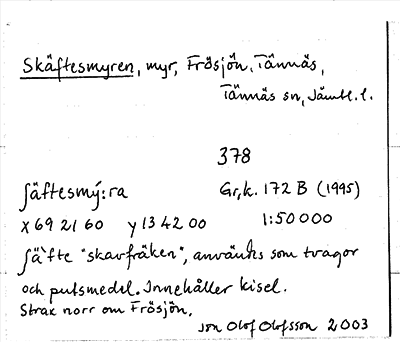 Skäftesmyren, myr, Frösjön, Tännäs,
Tännäs sn, Jämtl. l.
378
ʃäftesmý:ra Gr,k. 172 B (1995)
x 69 21 60 y 13 42 00 1:50 000
ʃä`fte "skavfräken", används som tvagor
och putsmedel. Innehåller kisel.
Strax norr om Frösjön.
Jon Olof Olofsson 2003